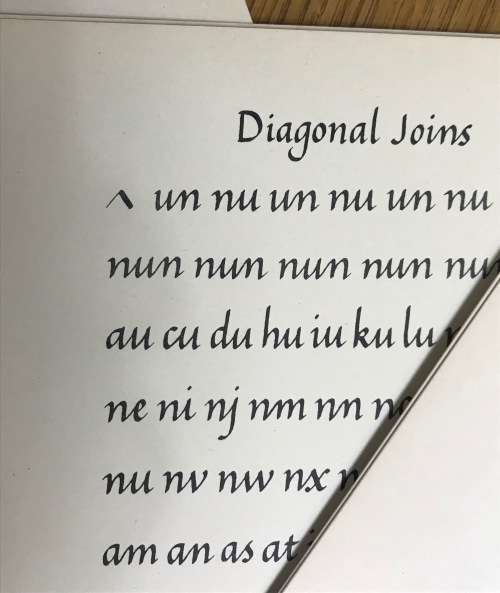 Diagonal Joins
un nu un nu un nu
nun nun nun nun
au cu du hu iu ku lu
ne ni nj nm nn
nu nv nw nx
am an as at